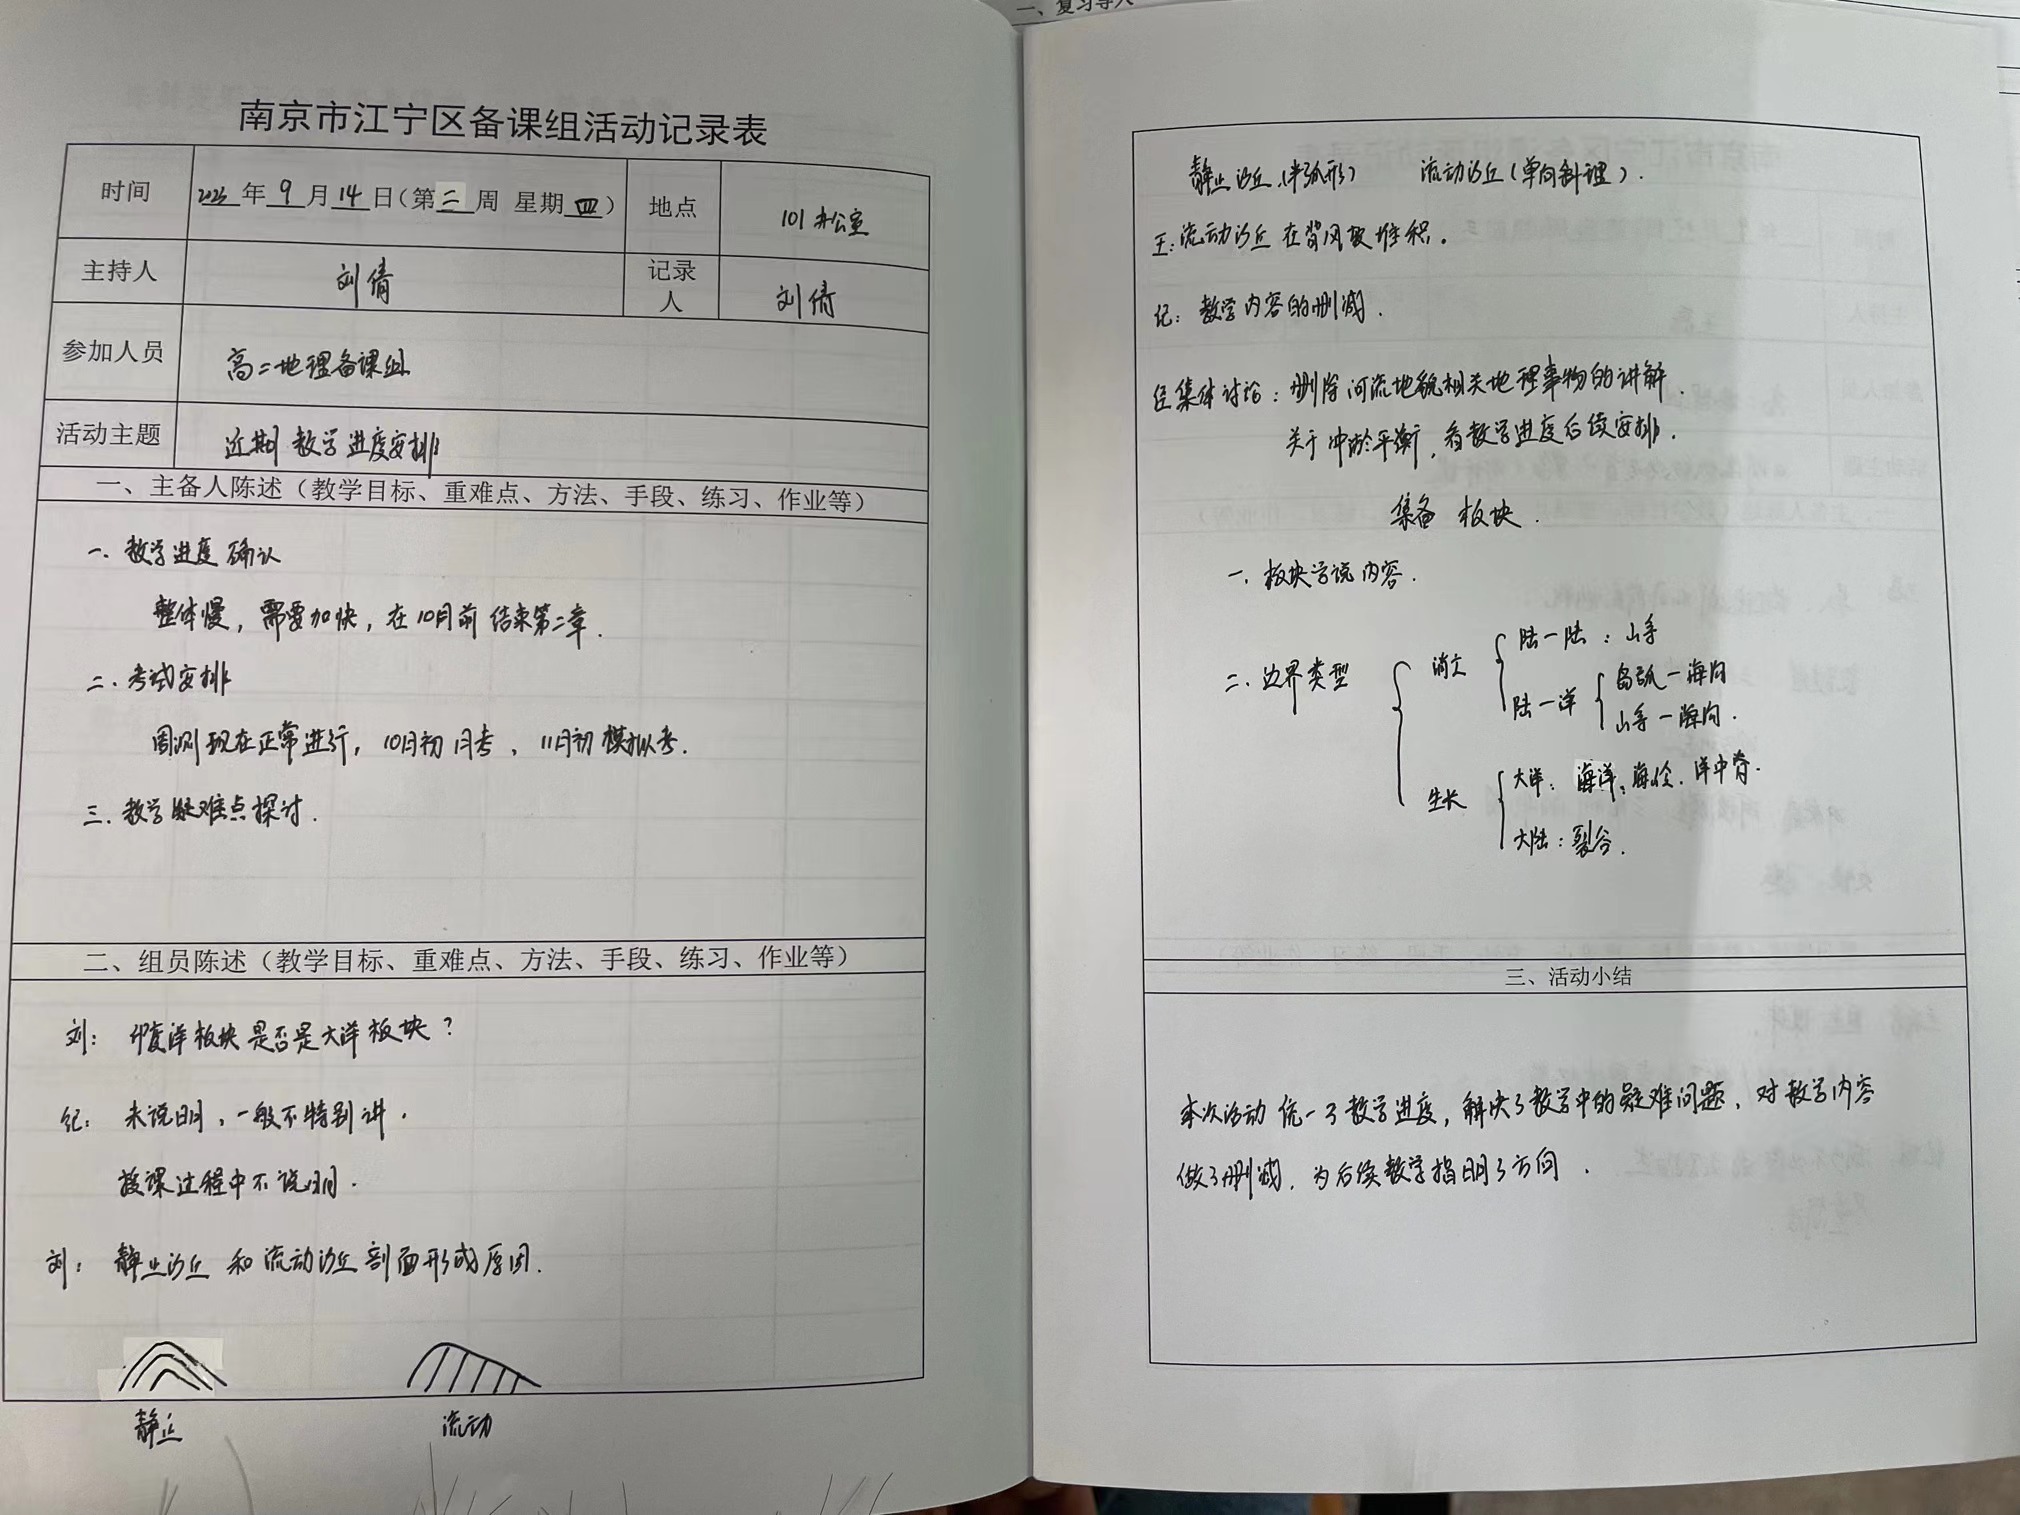 一、复习导入
南京市江宁区备课组活动记录表
时间 2023年9月14日(第二周 星期四) 地点 101办公室
主持人 刘倩 记录人 刘倩
参加人员 高二地理备课组
活动主题 近期教学进度安排
一、主备人陈述（教学目标、重难点、方法、手段、练习、作业等）
一、教学进度确认
整体慢，需要加快，在10月前结束第二章.
二、考试安排
周测现在正常进行，10月初月考，11月初模拟考.
三、教学疑难点探讨.
二、组员陈述（教学目标、重难点、方法、手段、练习、作业等）
刘：印度洋板块是否是大洋板块？
纪：未说明，一般不特别讲.
授课过程中不说明.
刘：静止沙丘和流动沙丘剖面形成原因.
静止 流动
静止沙丘(半弧形) 流动沙丘(单向斜理).
王：流动沙丘在背风坡堆积。
纪：教学内容的删减.
经集体讨论：删除河流地貌相关地理事物的讲解.
关于冲淤平衡，看教学进度后续安排.
集备 板块.
一、板块学说内容.
二、边界类型
消亡
陆—陆：山系
陆—洋
岛弧—海沟
山系—海沟.
生长
大洋：海洋、海岭、洋中脊.
大陆：裂谷.
三、活动小结
本次活动统一了教学进度，解决了教学中的疑难问题，对教学内容
做了删减，为后续教学指明了方向.